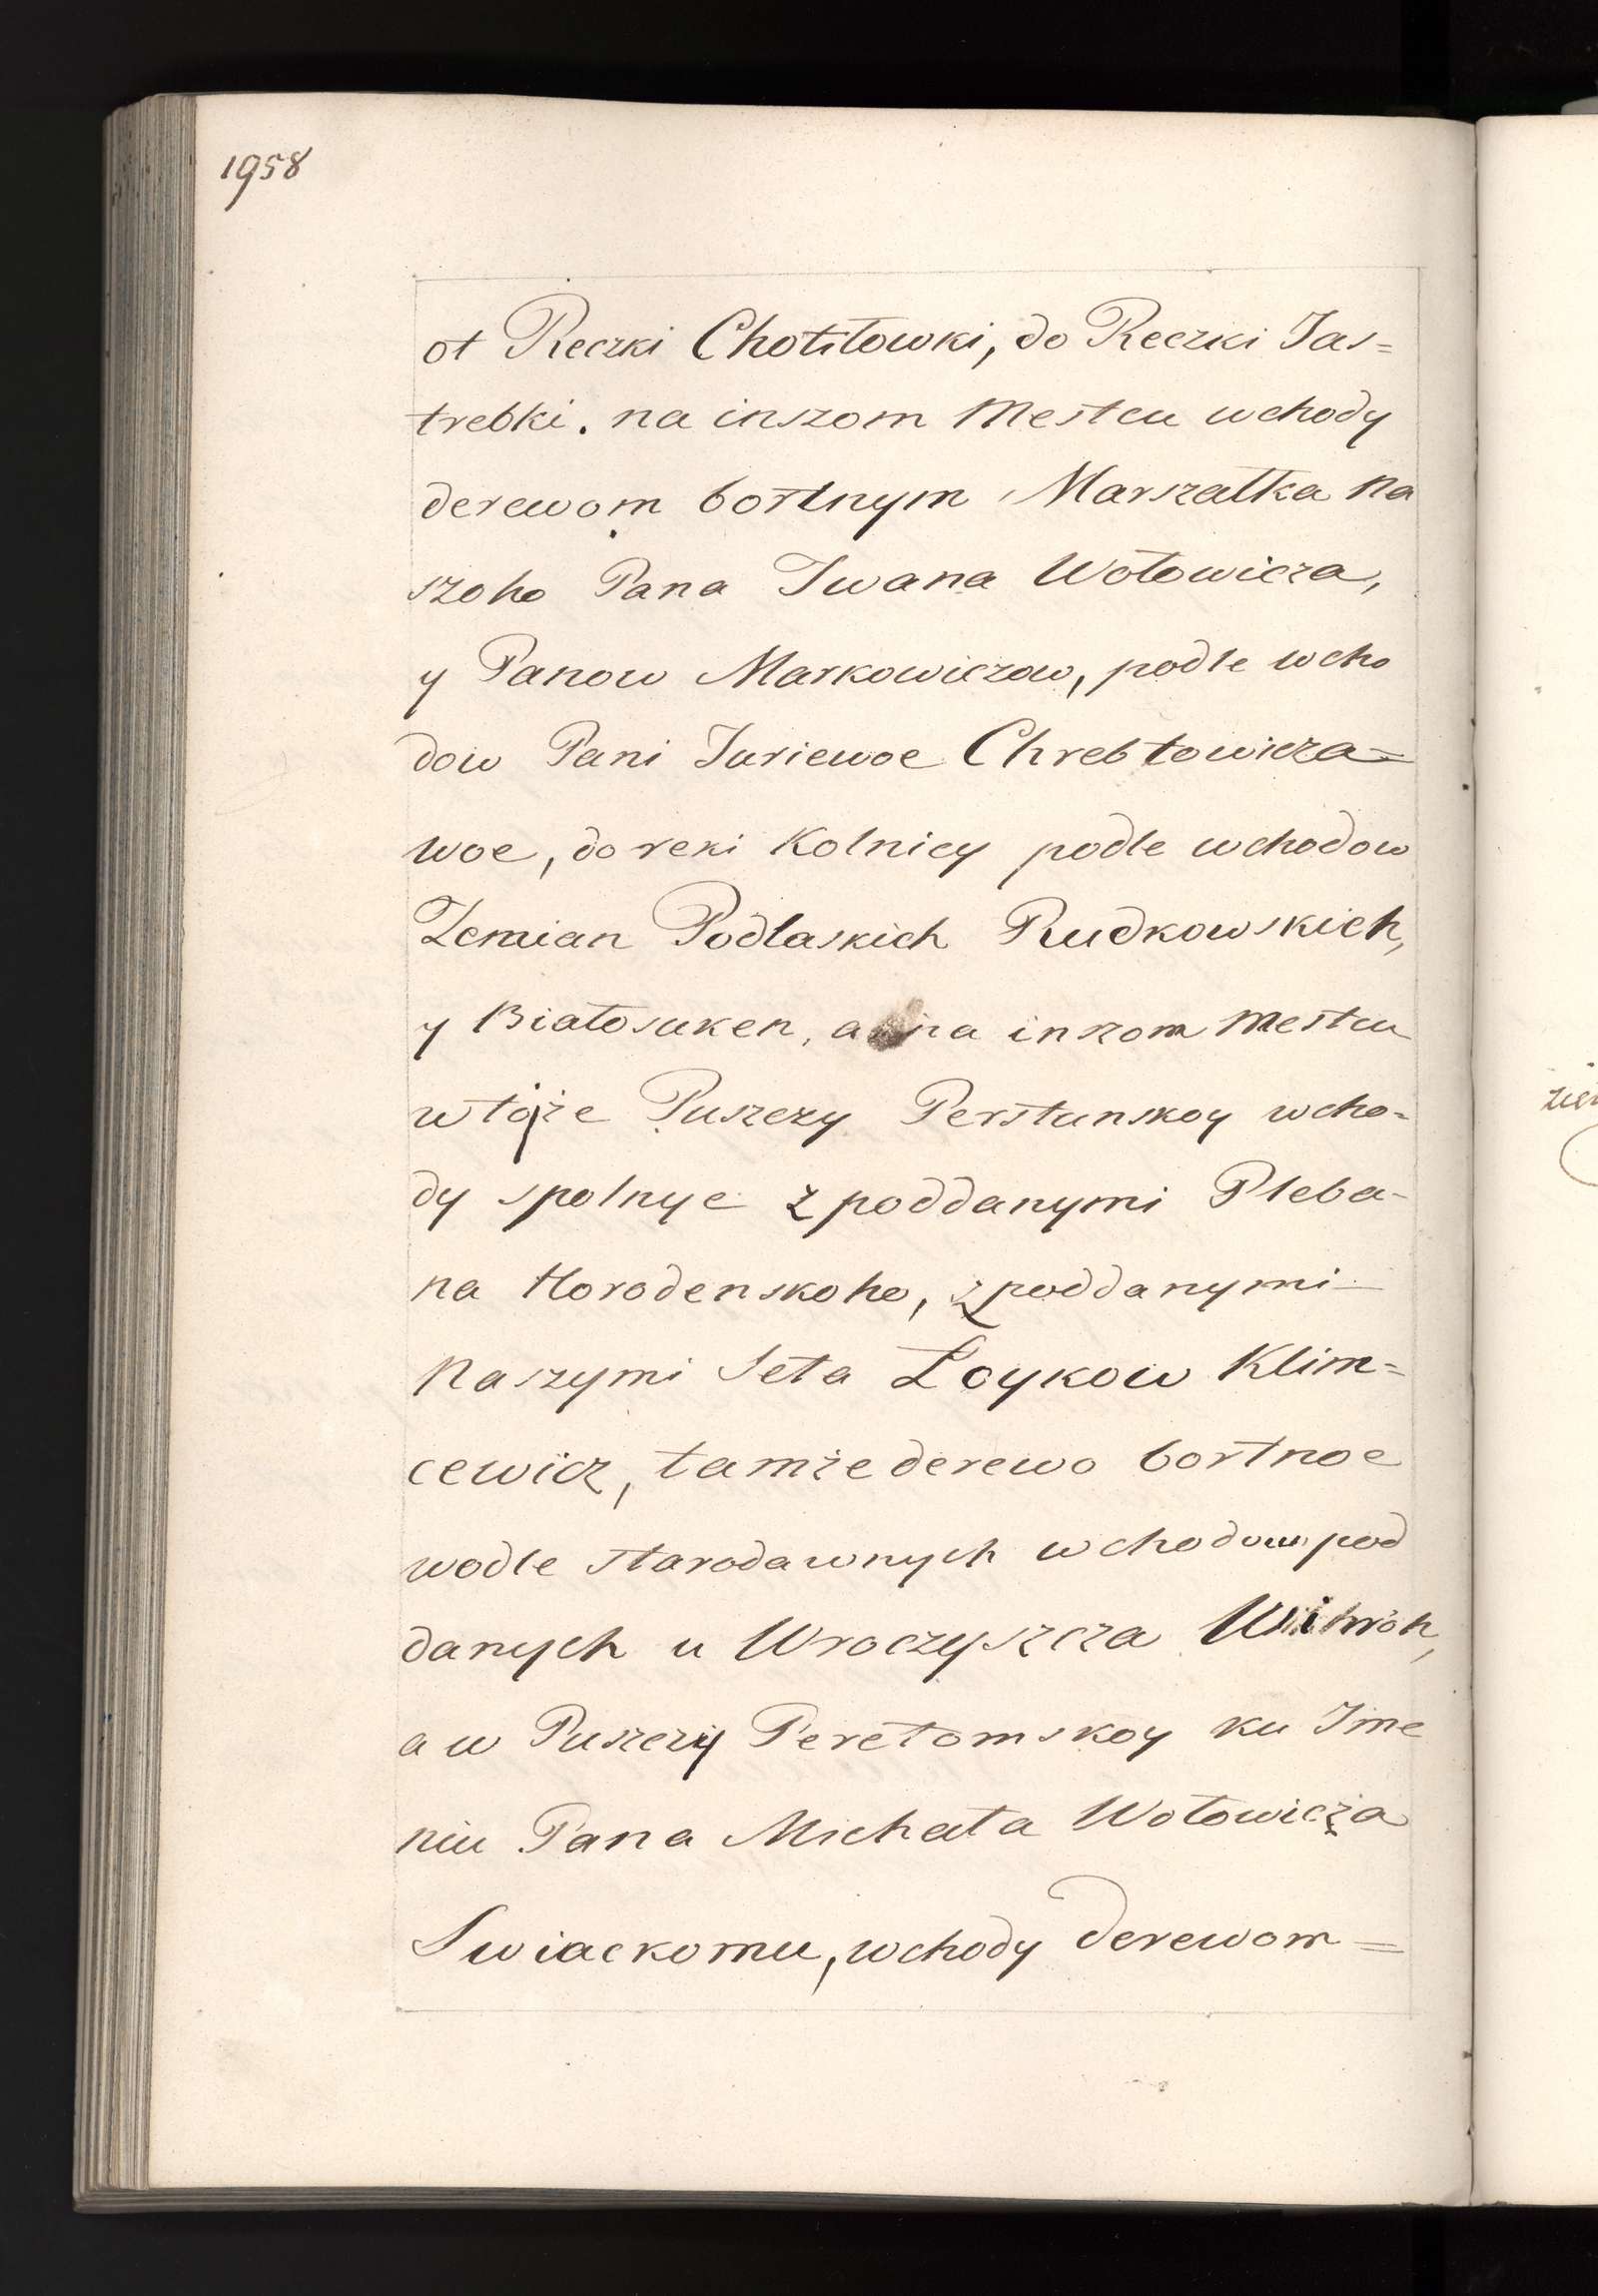 1958
ot Reczki Chotiłowki, do Reczki Jas=
trebki. na inszom Mestcu wchody
derewom bortnym Marszałka na
szoho Pana Iwana Wołowicza,
y Panow Markowiczow, podle wcho
dow Pani Juriewoe Chrebtowicza=
woe, do reki Kolnicy podle wchodow
Zemian Podlaskich Rudkowskich,
y Białosuken, a na inszom Mestcu
w tojże Puszczy Perstunskoy wcho-
dy spolnye z poddanymi Pleba-
na Horodenskoho, z poddanymi
Naszymi Seła Łoykow Klim=
cewicz, tamże derewo bortnoe
wodle starodawnych wchodow pod
danych u Wroczyszcza
a w Puszczy Perełomskoy ku Ime
niu Pana Michała Wołowicza
Swiackomu, wchody derewom=